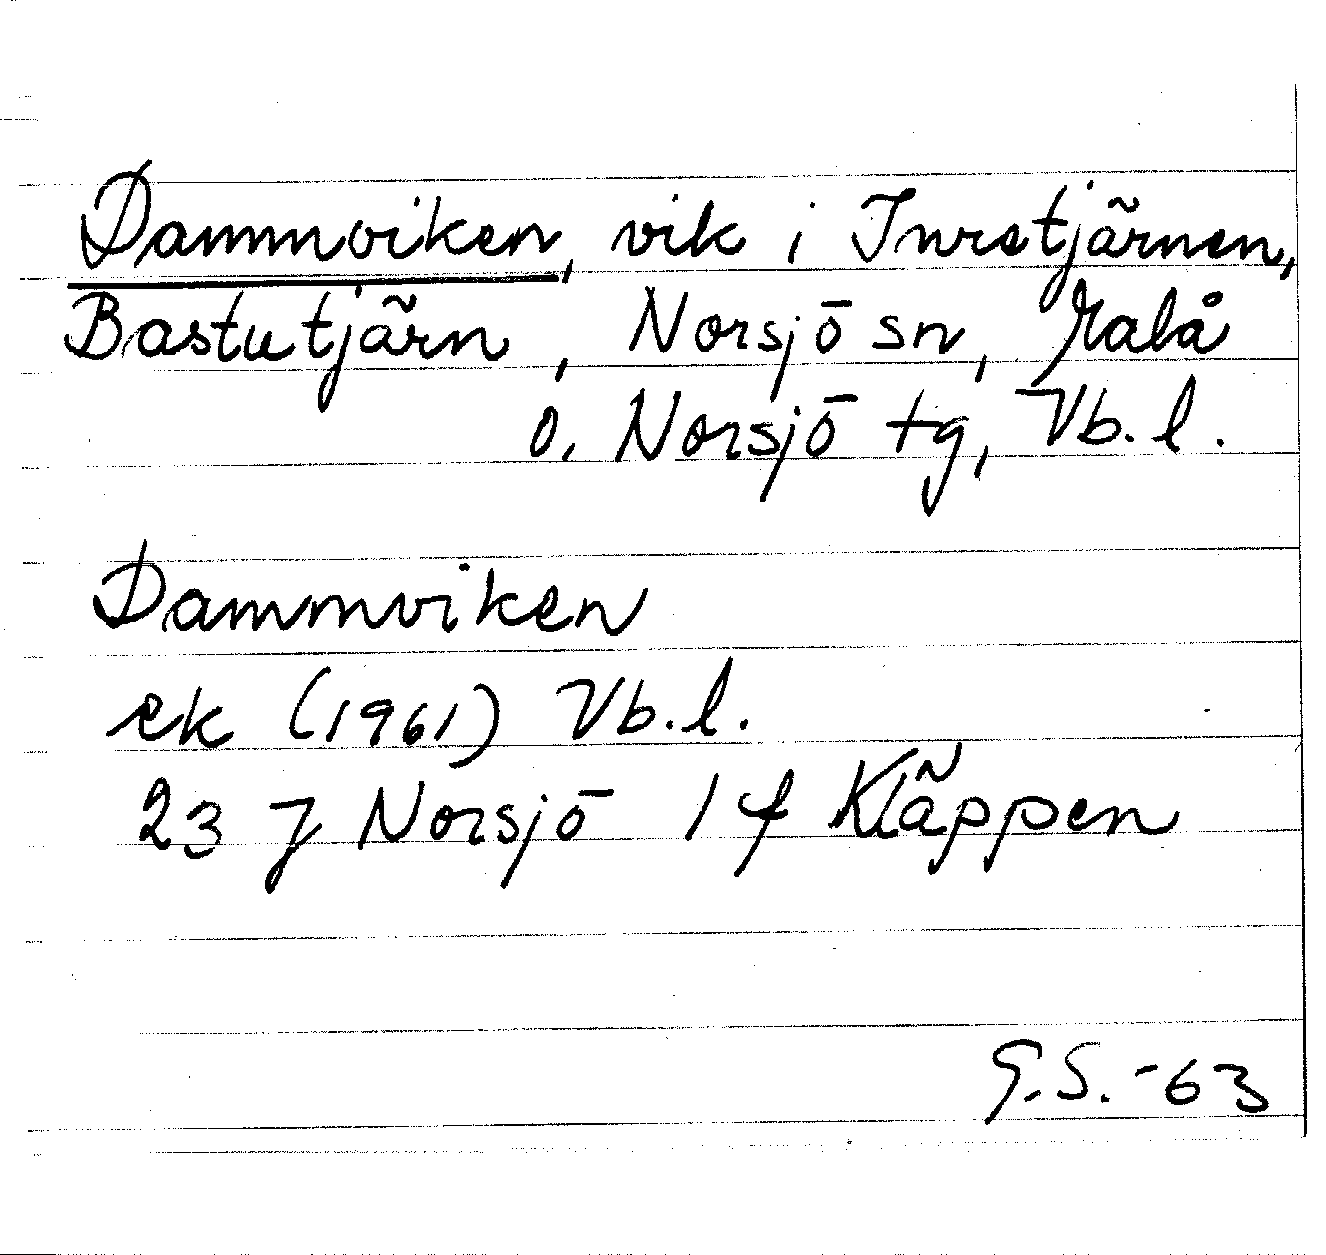 Dammviken, vik i Inretjärnen,
Bastutjärn, Norsjö sn, Malå
o. Norsjö tg, Vb. l.
Dammviken
ek (1961) Vb. l.
23 J Norsjö 1 f Kläppen
G.S. -63